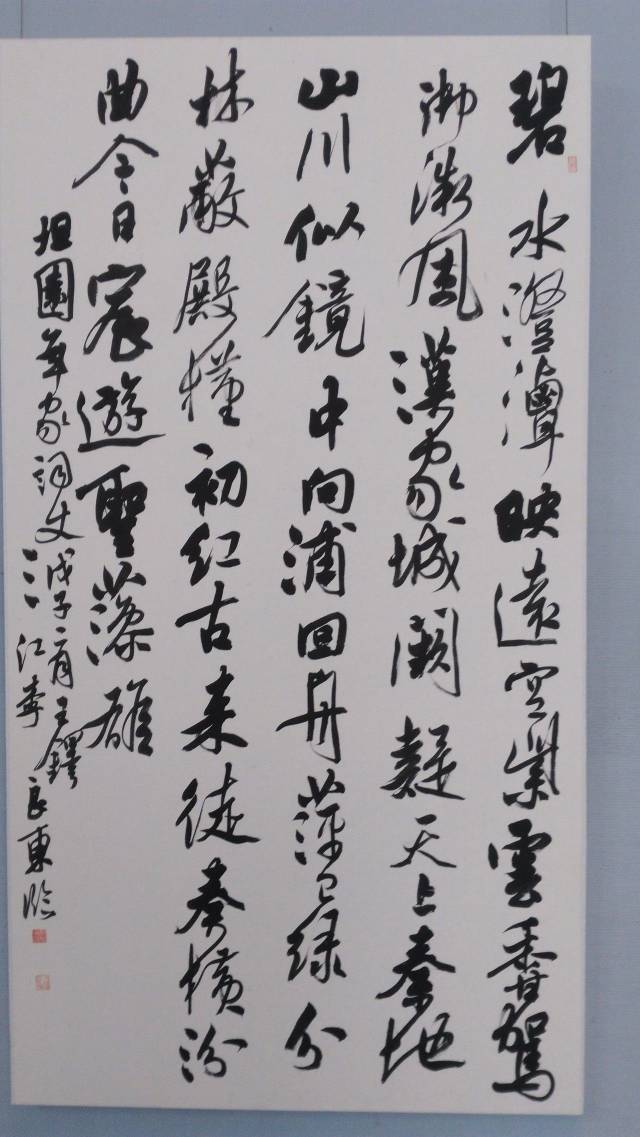 碧水澄潭映遠空紫雲香駕
御微風漢家城闕疑天上秦地
山川似鏡中向浦回舟萍已綠分
林蔽殿槿初紅古來徒奏橫汾
曲今日宸遊聖藻雄
坦園年家詞丈戊子二月王鐸
江李良東臨